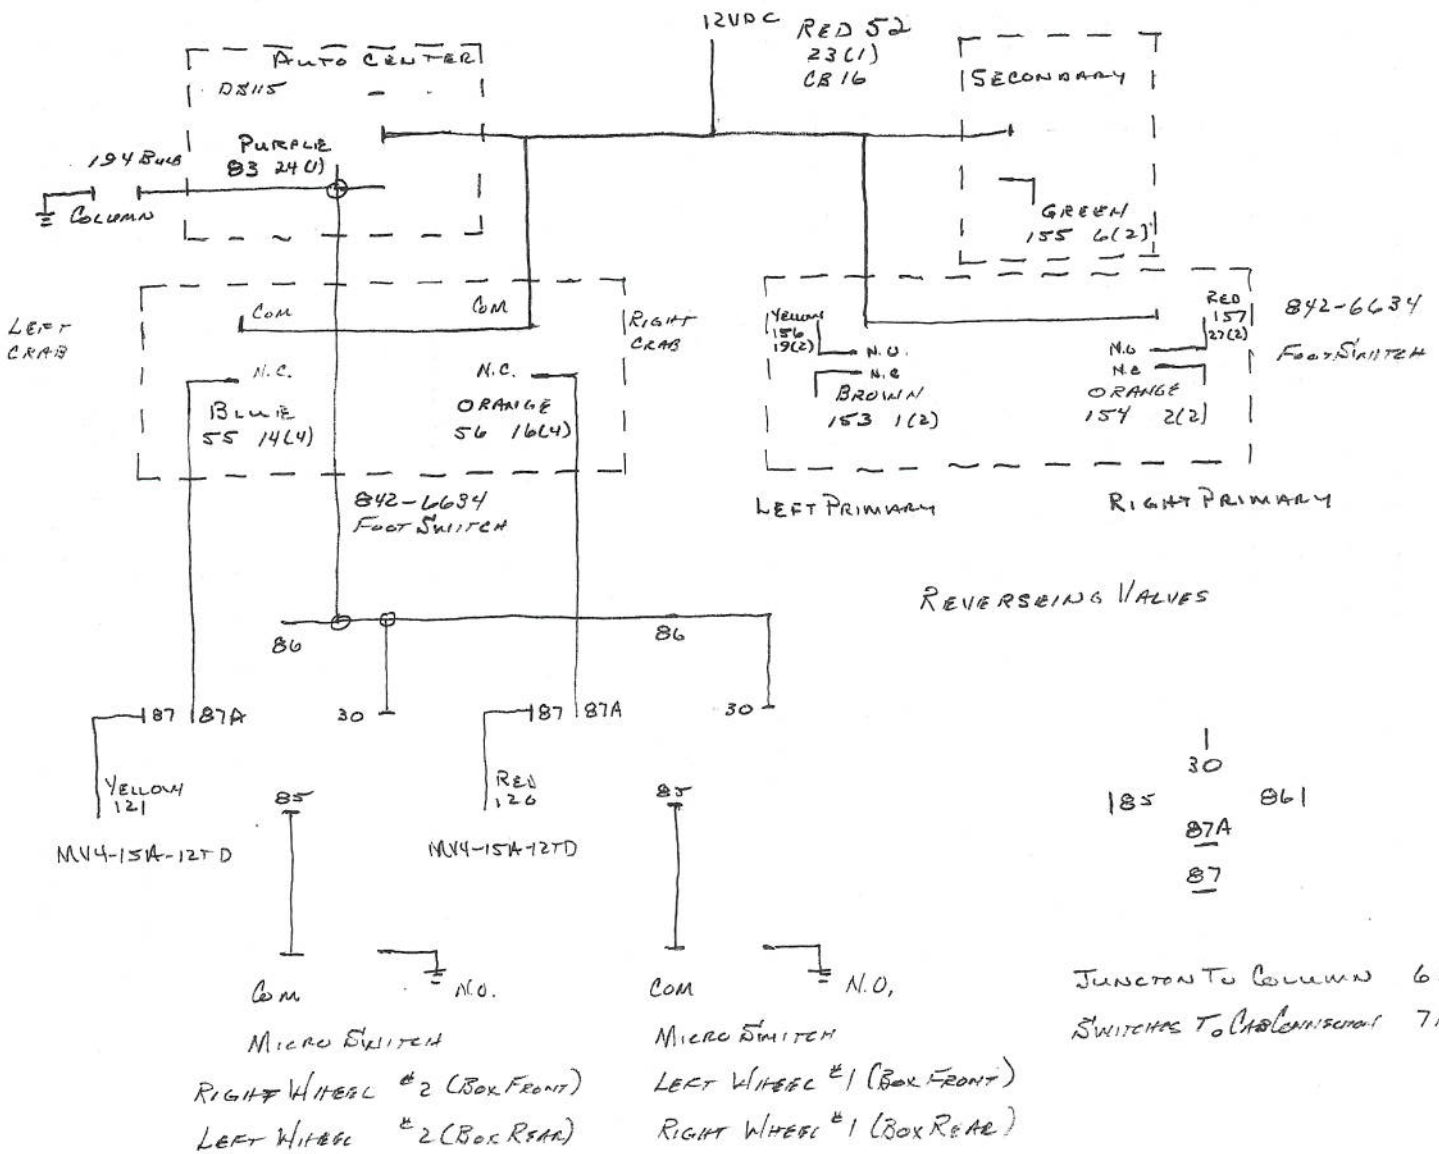 12VDC
RED 52
23(1)
CB 16
AUTO CENTER
DS115
SECONDARY
PURPLE
83 24(1)
194 BULB
COLUMN
GREEN
155 6(2)
LEFT
CRAB
COM
COM
RIGHT
CRAB
N.C.
N.C.
BLUE
55 14(4)
ORANGE
56 16(4)
842-6634
FOOT SWITCH
YELLOW
156
19(2)
N.O.
N.C
BROWN
153 1(2)
RED
157
27(2)
N.O
N.C
ORANGE
154 2(2)
842-6634
FOOT SWITCH
LEFT PRIMARY
RIGHT PRIMARY
REVERSEING VALVES
86
86
87 87A
30
87 87A
30
YELLOW
121
RED
120
85
85
MV4-15A-12TD
MV4-15A-12TD
30
85 86
87A
87
COM
N.O.
COM
N.O.
MICRO SWITCH
MICRO SWITCH
RIGHT WHEEL #2 (BOX FRONT)
LEFT WHEEL #1 (BOX FRONT)
LEFT WHEEL #2 (BOX REAR)
RIGHT WHEEL #1 (BOX REAR)
JUNCTON TO COLUMN 6
SWITCHES TO CAB